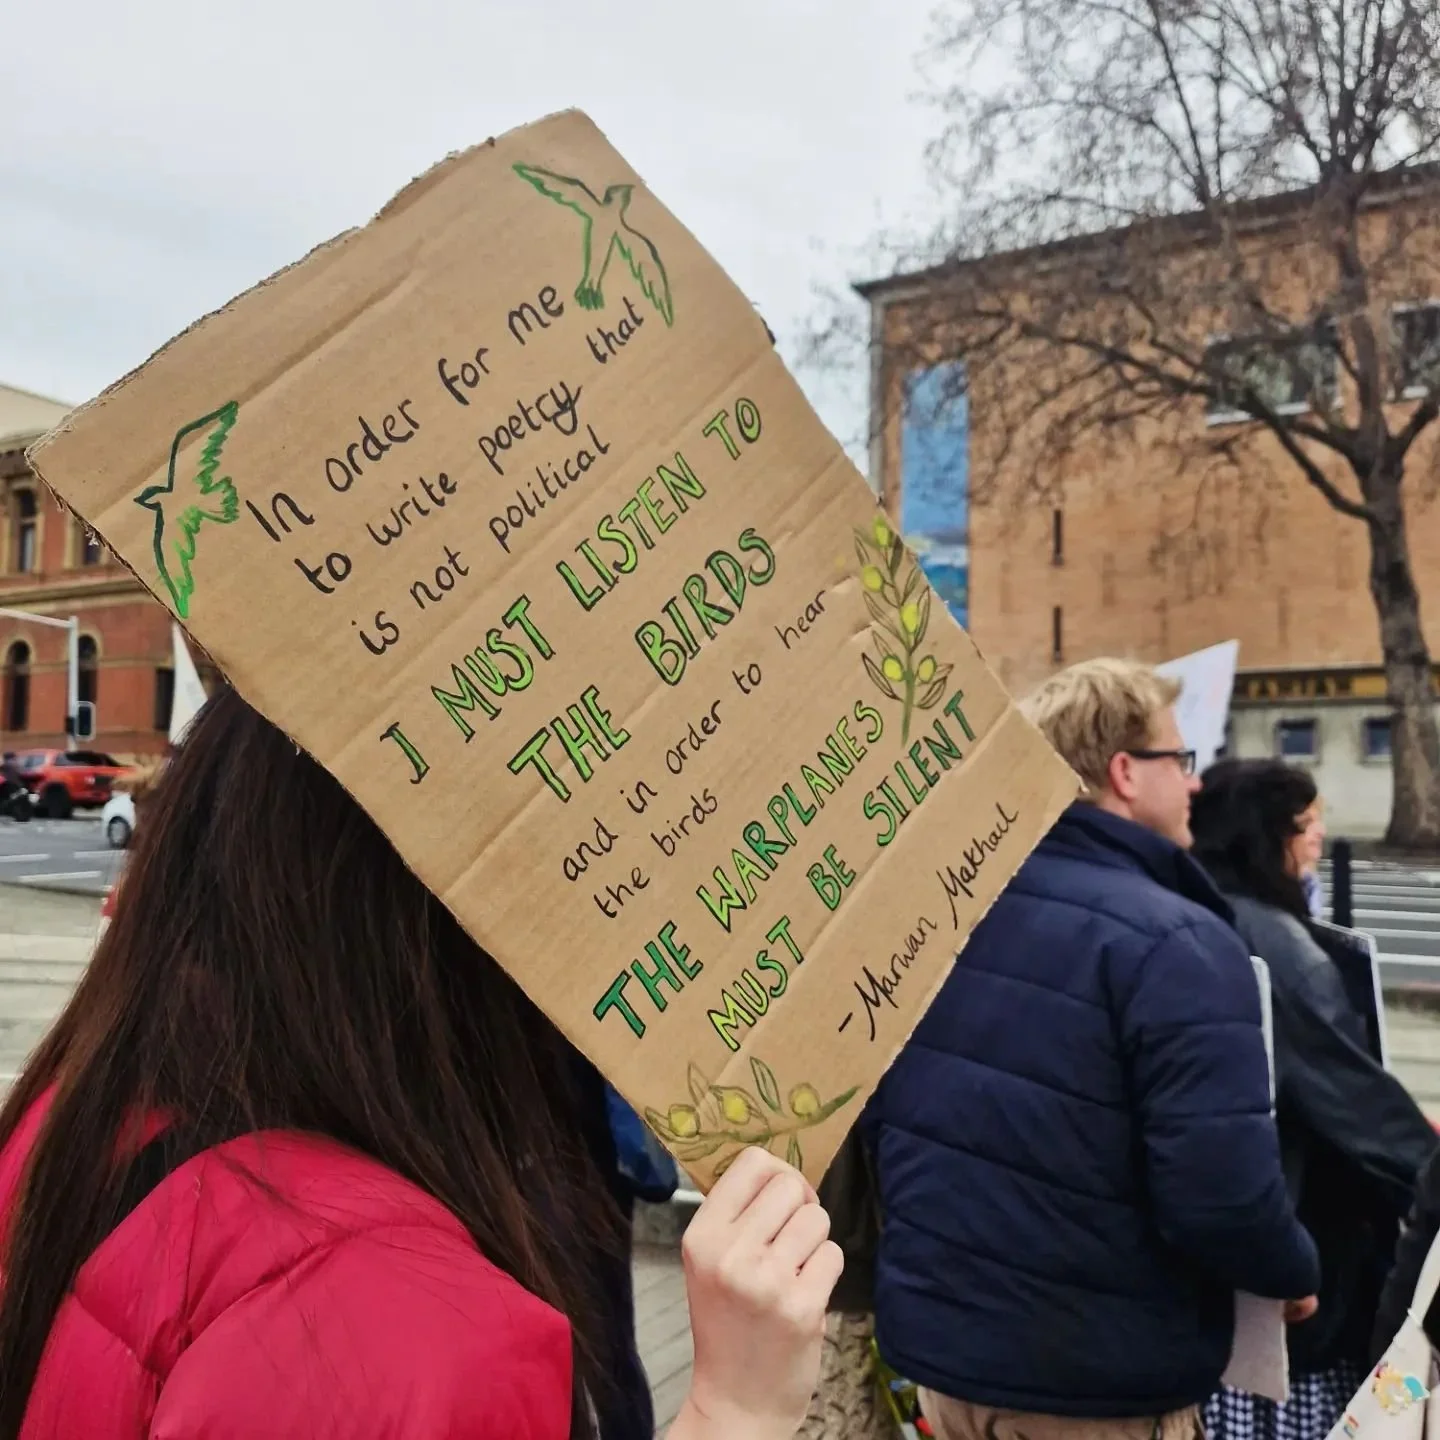 In order for me
to write poetry that
is not political
I MUST LISTEN TO
THE BIRDS
and in order to hear
the birds
THE WARPLANES
MUST BE SILENT
-Marwan Makhoul